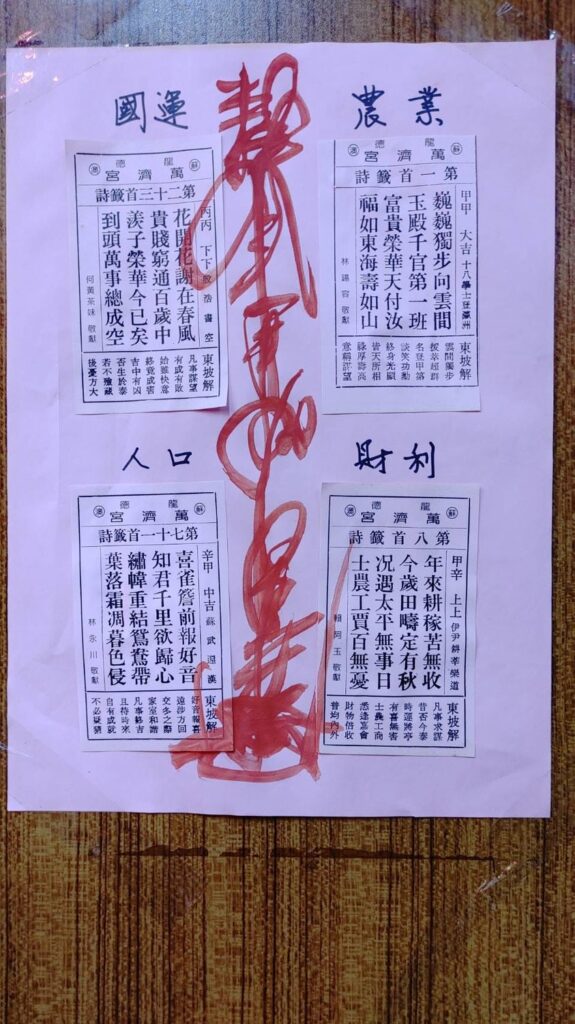 國運
蘇 龍德 澳
萬濟宮
第二十三首籤詩
丙丙 下下 殷浩書空
花開花謝在春風
貴賤窮通百歲中
羨子榮華今已矣
到頭萬事總成空
何黃茶妹 敬獻
東坡解
凡事謀望
有成有敗
始雖快意
終竟成害
吉中有凶
否生於泰
若不殮藏
後憂方大
農業
蘇 龍德 澳
萬濟宮
第一首籤詩
甲甲 大吉 十八學士登瀛洲
巍巍獨步向雲間
玉殿千官第一班
富貴榮華天付汝
福如東海壽如山
林錫容 敬獻
東坡解
雲間獨步
拔萃超群
名登甲第
談笑功勳
終身光顯
皆天所相
祿厚壽高
意稱謀望
人口
蘇 龍德 澳
萬濟宮
第七十一首籤詩
辛甲 中吉 蘇武還漢
喜雀簷前報好音
知君千里欲歸心
繡幃重結鴛鴦帶
葉落霜凋暮色侵
林永川 敬獻
東坡解
好音報喜
遠涉方回
交冬之際
家室和諧
凡事終吉
且待時來
自有成就
不必疑猜
財利
蘇 龍德 澳
萬濟宮
第八首籤詩
甲辛 上上 伊尹耕莘樂道
年來耕稼苦無收
今歲田疇定有秋
況遇太平無事日
士農工賈百無憂
賴阿玉 敬獻
東坡解
凡事求謀
昔否今泰
時運將亨
有喜無害
士農工商
悉逢嘉會
財物倍收
普均內外